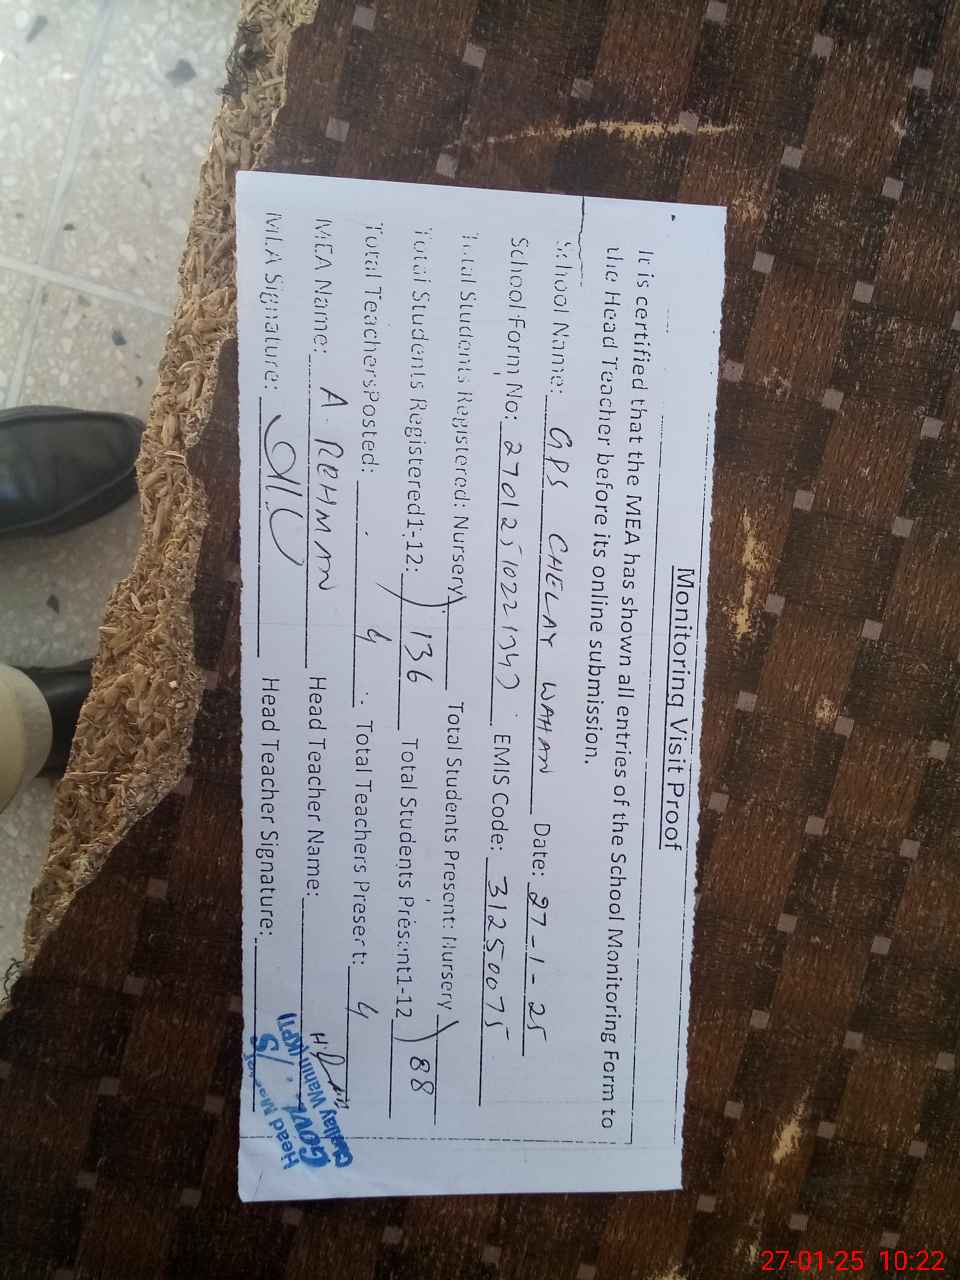 Monitoring Visit Proof
It is certified that the MEA has shown all entries of the School Monitoring Form to
the Head Teacher before its online submission.
School Name: GPS CHELAY WAHAN Date: 27-1-25
School Form No: EMIS Code: 31250075
Total Students Registered: Nursery) Total Students Present: Nursery)
Total Students Registered1-12:) 136 Total Students Present1-12) 88
Total TeachersPosted: 4. Total Teachers Present: 4
MEA Name: A. REHMAN Head Teacher Name:
MEA Signature: Head Teacher Signature:
Head Master
Govt.
27-01-25 10:22